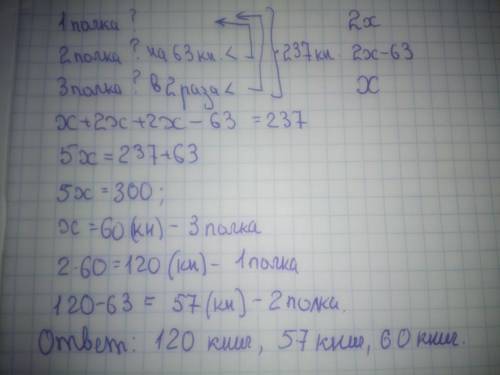 1 полка ? 2x
2 полка ? на 63 кн. < 237 кн. 2x-63
3 полка ? в 2 раза < x
x+2x+2x-63 =237
5x=237+63
5x=300;
x=60(кн)- 3 полка
2·60=120 (кн)- 1 полка
120-63= 57(кн)-2 полка.
Ответ: 120 книг, 57 книг, 60 книг.